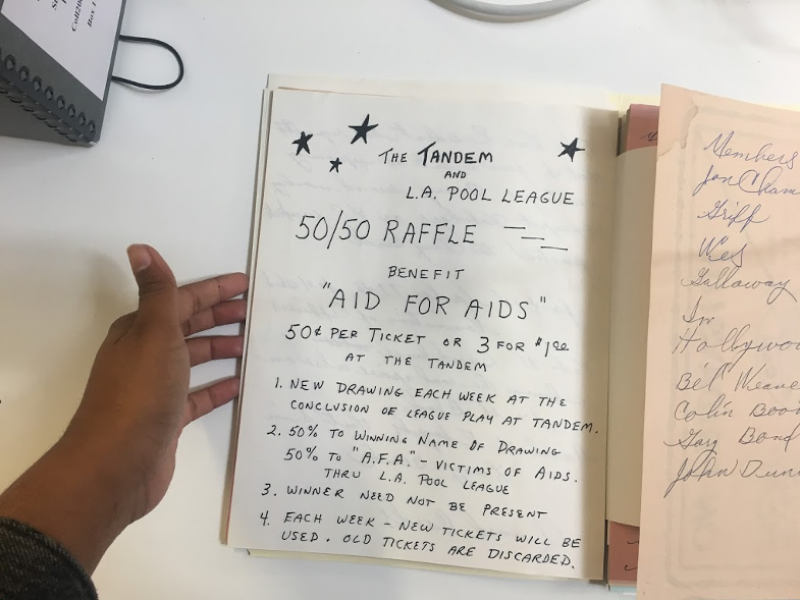 THE TANDEM
AND
L.A. POOL LEAGUE
50/50 RAFFLE
BENEFIT
"AID FOR AIDS"
50¢ PER TICKET OR 3 FOR $1.00
AT THE TANDEM
1. NEW DRAWING EACH WEEK AT THE
CONCLUSION OF LEAGUE PLAY AT TANDEM.
2. 50% TO WINNING NAME OF DRAWING
50% TO "A.F.A." - VICTIMS OF AIDS.
THRU L.A. POOL LEAGUE
3. WINNER NEED NOT BE PRESENT
4. EACH WEEK - NEW TICKETS WILL BE
USED. OLD TICKETS ARE DISCARDED.
Members
Jon Cham
Griff
Wes
Gallaway
In
Hollywoo
Bél Weave
Colin Boo
Gary Bond
John Dunn
Box 1